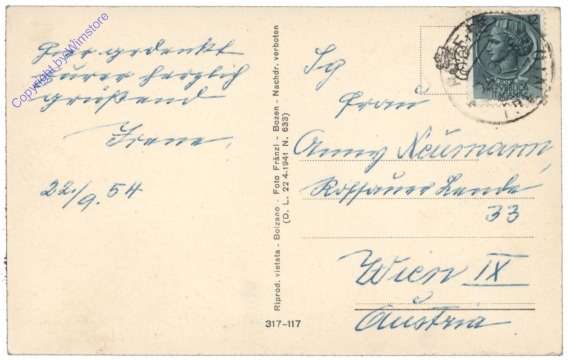 gedenkt
Eurer herzlich
grüßend
Irene
22./9. 54
Copyright by Wimstore
Riprod. vietata - Bolzano - Foto Fränzl - Bozen - Nachdr. verboten
(D. L. 22 4-1941 N. 633)
317-117
Frau
Anny Neumann,
Rossauer Lände
33
Wien IX
Austria